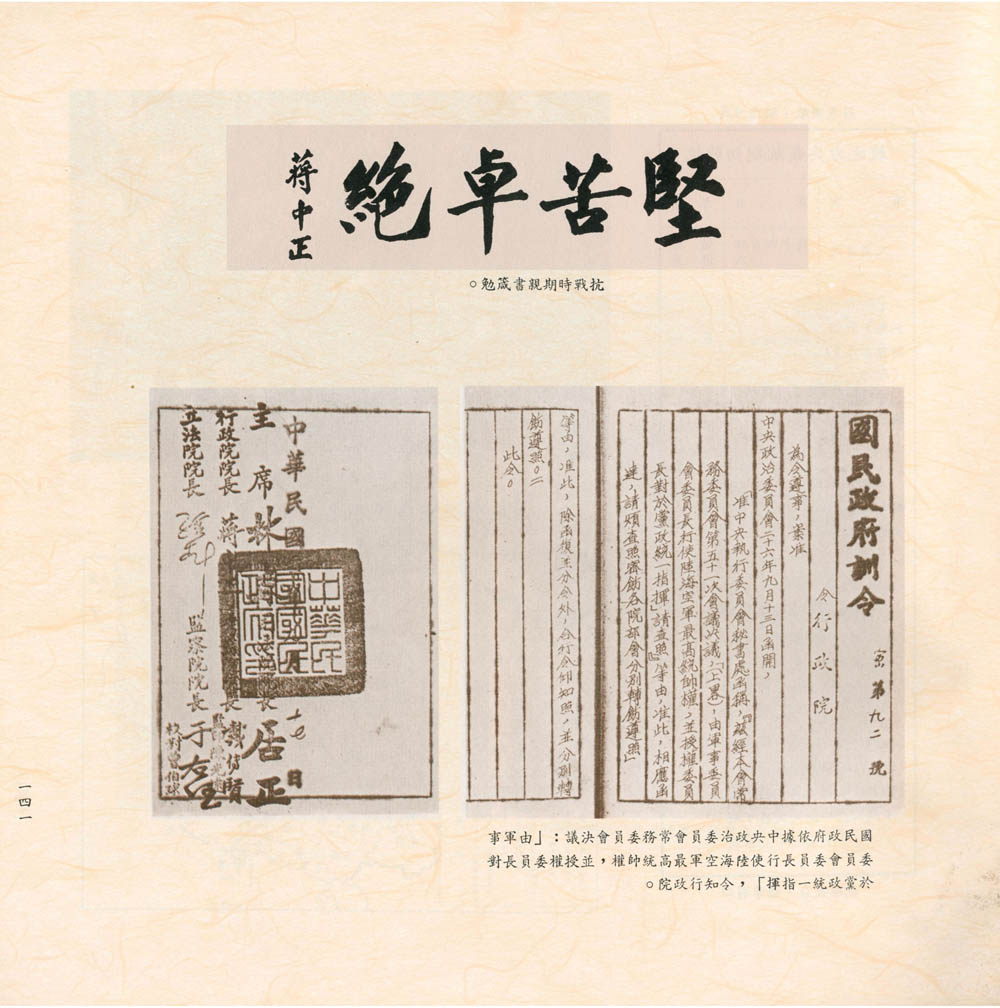 堅苦卓絕
蔣中正
抗戰時期親書箴勉。
國民政府訓令 密第九二號
令行政院
為令遵事，案准
中央政治委員會二十六年九月十三日函開，
「准中央執行委員會秘書處函稱，『茲經本會常
務委員會第五十一次會議決議，「（上畧），由軍事委員
會委員長行使陸海空軍最高統帥權，並授權委員
長對於黨政統一指揮」請查照』等由，准此，相應函
達，請煩查照密飭各院部會分別轉飭遵照」
等由，准此，除函復並分令外，合行令仰知照，並分別轉
飭遵照。
此令。
中華民國 十七日
主席 林
居正
行政院院長 蔣
立法院院長
監察院院長 于右任
國民政府依據中央政治委員會常務委員會決議：「由軍事
委員會委員長行使陸海空軍最高統帥權，並授權委員長對
於黨政統一指揮」，令知行政院。
一四一